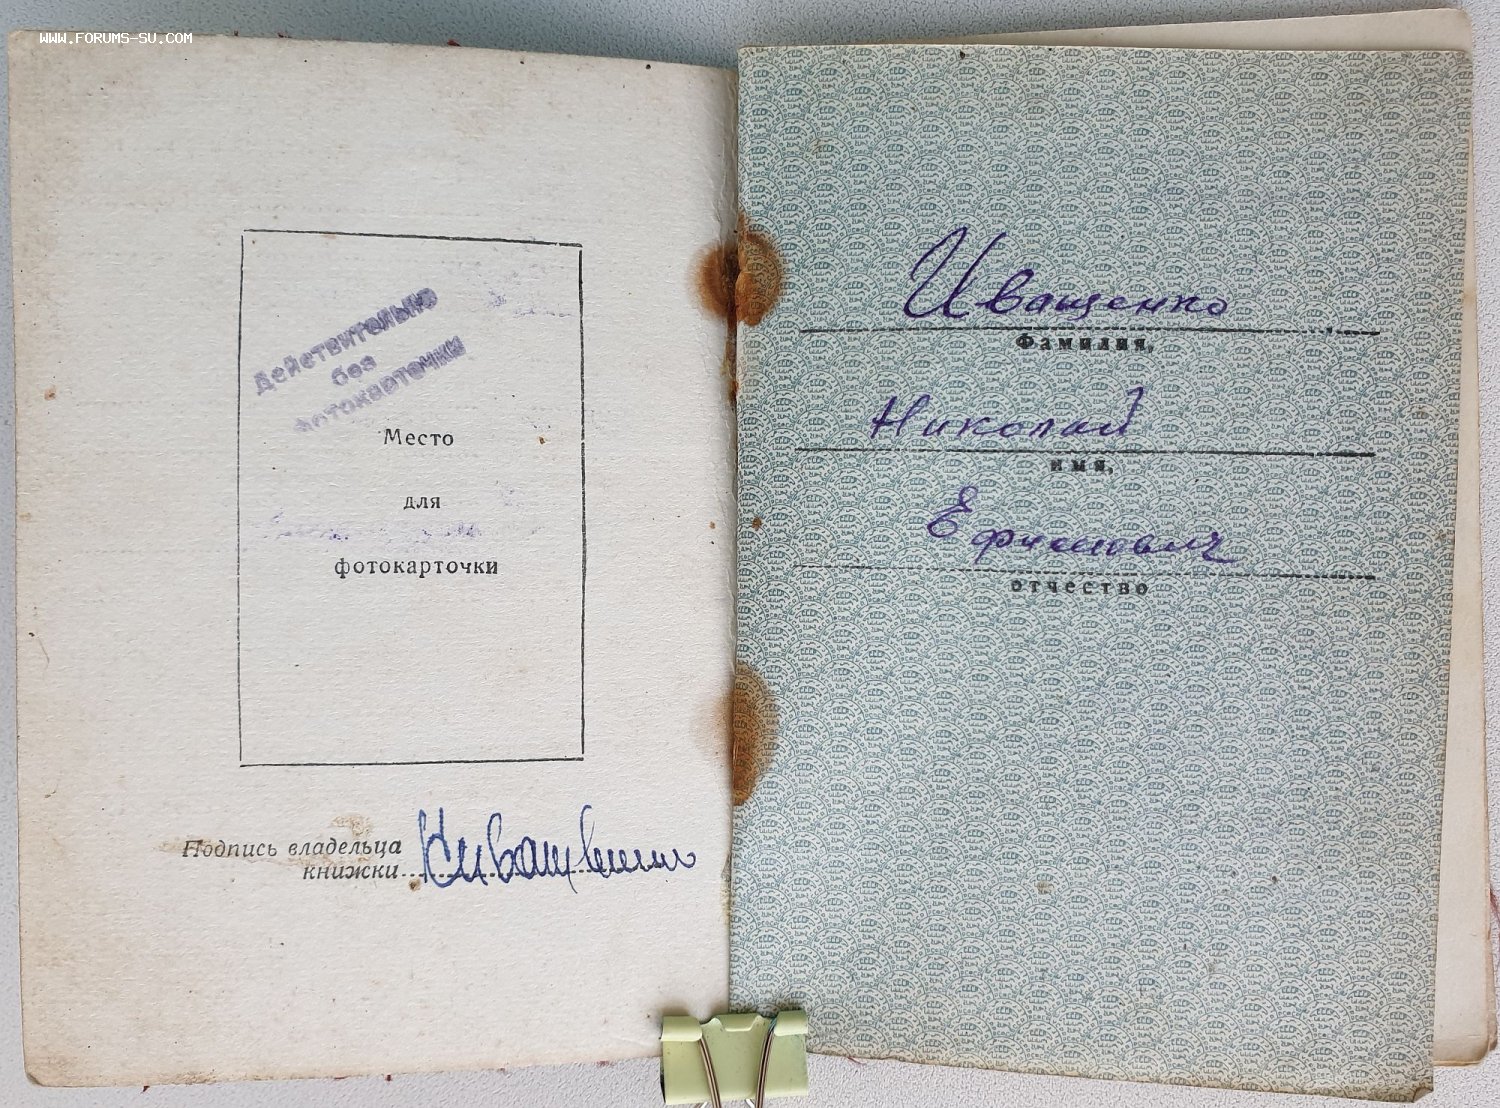 WWW.FORUMS-SU.COM
Действительно
без
фотокарточки
Место
для
фотокарточки
Подпись владельца
книжки
Иващенко
Фамилия,
Николай
имя,
Ефимович
отчество